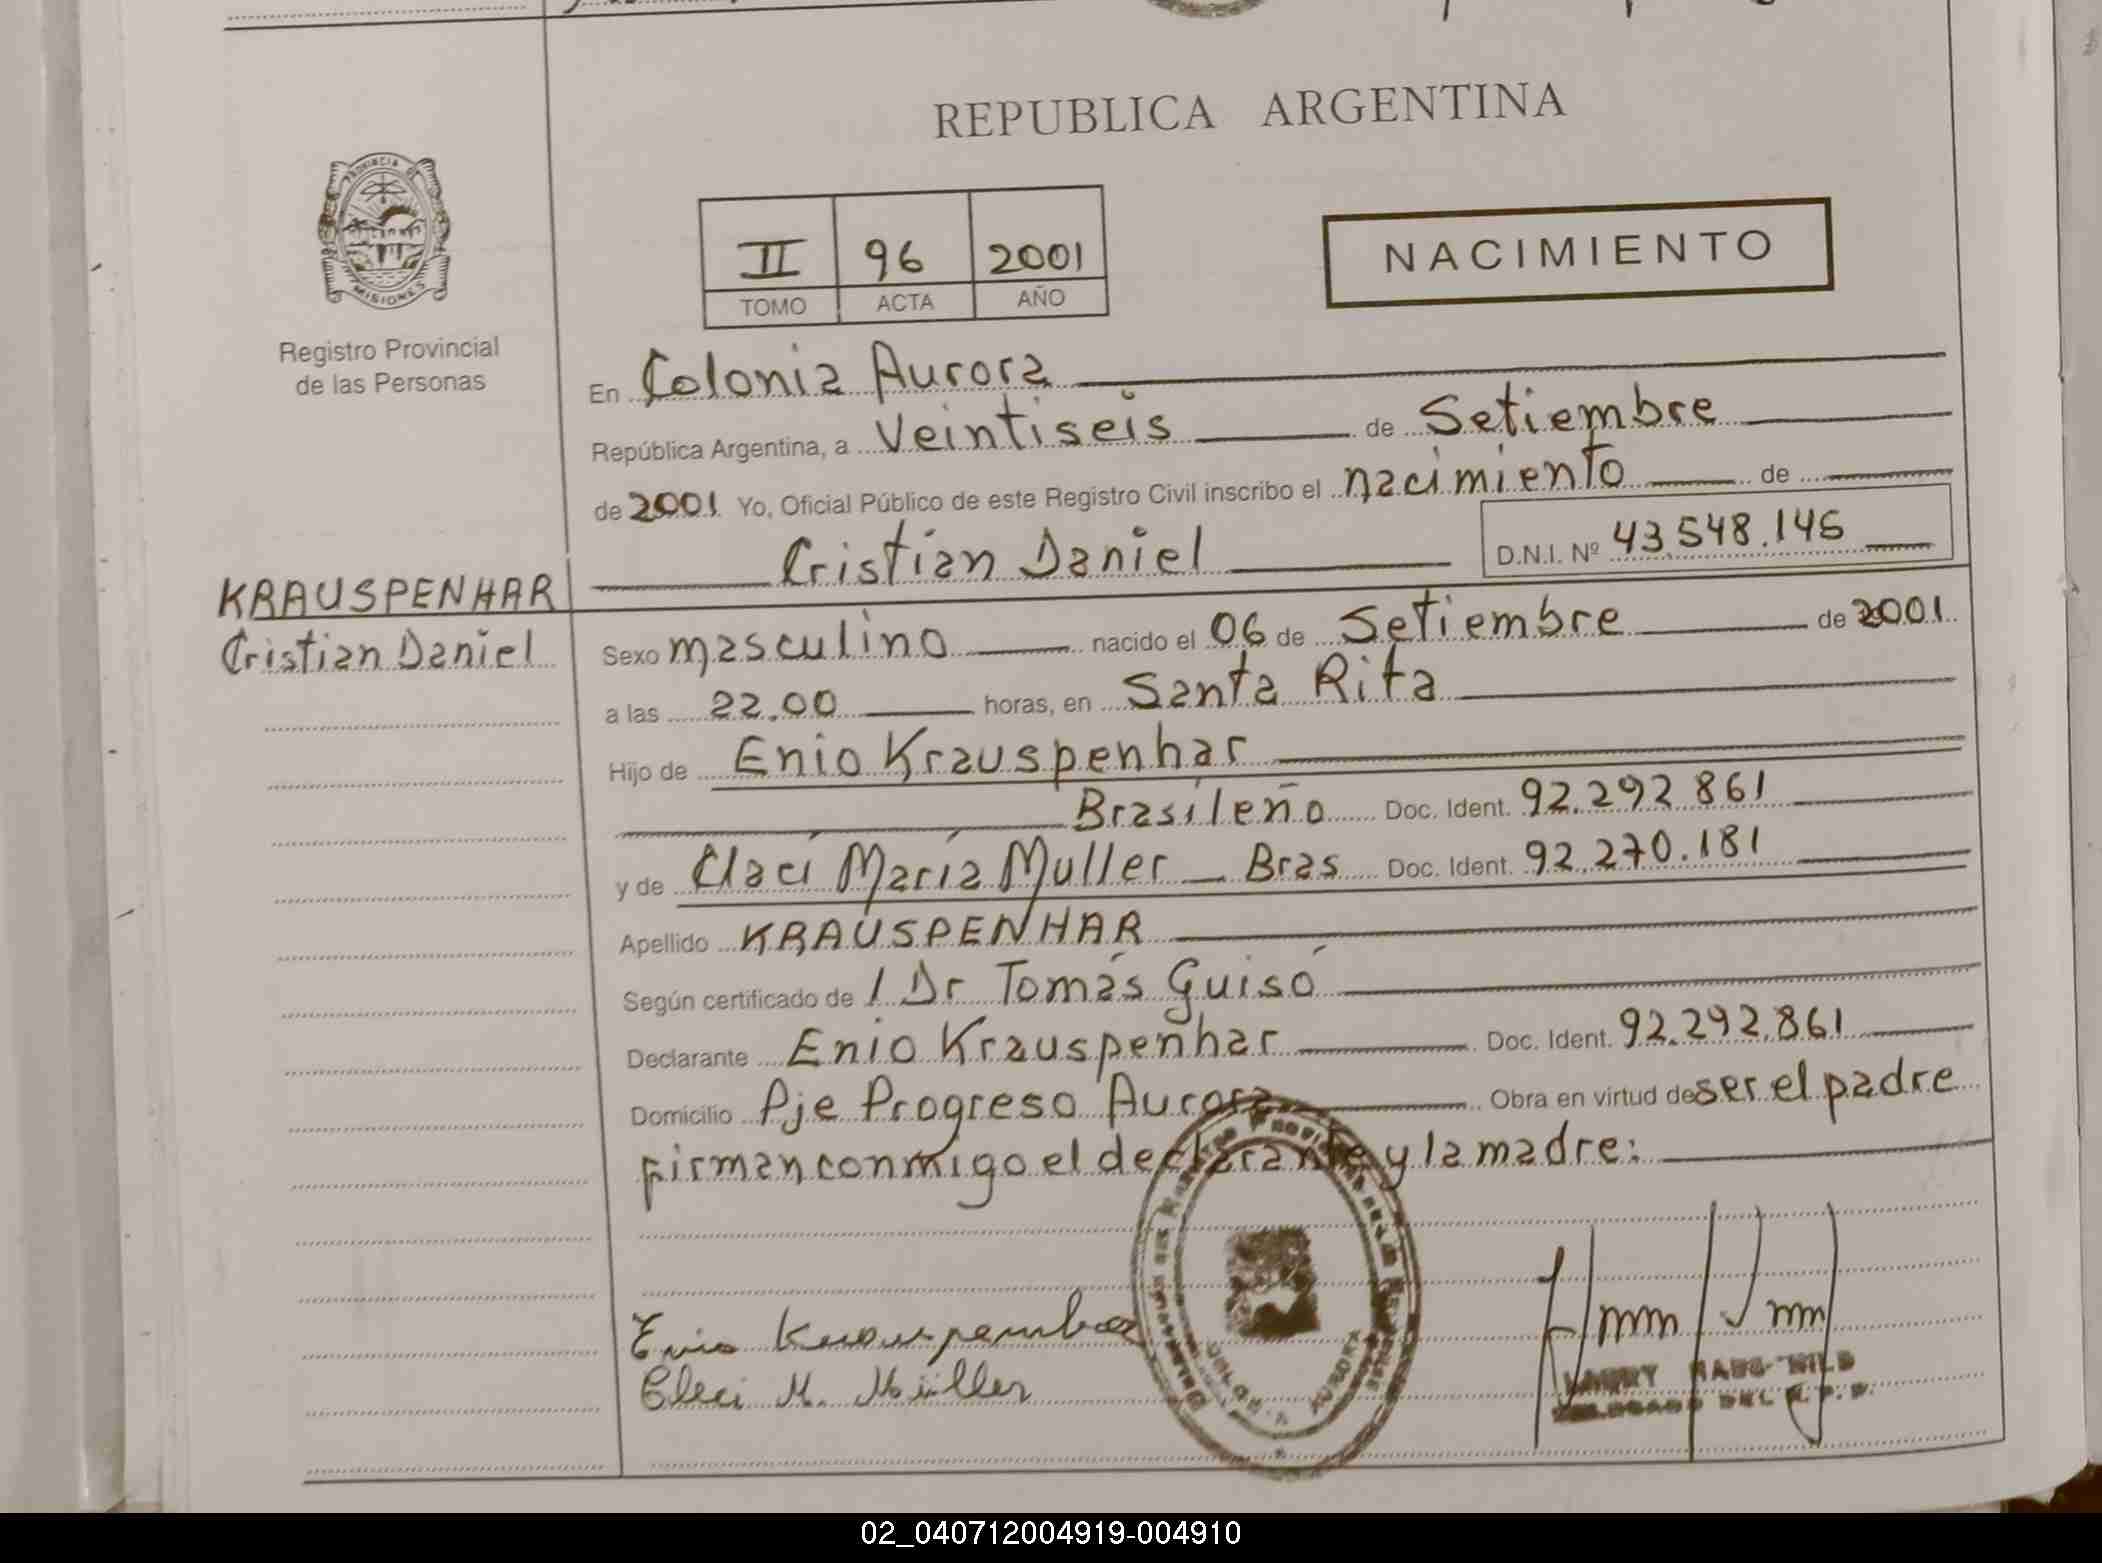 REPUBLICA ARGENTINA
PROVINCIA DE
MISIONES
Registro Provincial
de las Personas
II 96 2001
TOMO ACTA AÑO
NACIMIENTO
En Colonia Aurora
República Argentina, a Veintiseis de Setiembre
de 2001 Yo, Oficial Público de este Registro Civil inscribo el nacimiento de
Cristian Daniel D.N.I. Nº 43.548.145
KRAUSPENHAR
Cristian Daniel
Sexo masculino nacido el 06 de Setiembre de 2001
a las 22.00 horas, en Santa Rita
Hijo de Enio Krauspenhar
Brasileño Doc. Ident. 92.292.861
y de Claci María Muller Bras Doc. Ident. 92.270.181
Apellido KRAUSPENHAR
Según certificado de / Dr Tomás Guisó
Declarante Enio Krauspenhar Doc. Ident. 92.292.861
Domicilio Pje Progreso Aurora Obra en virtud de ser el padre
firman conmigo el declarante y la madre:
Enio Krauspenhar
Cleci M. Müller
DELEGADO DEL R.P.P.
02_040712004919-004910